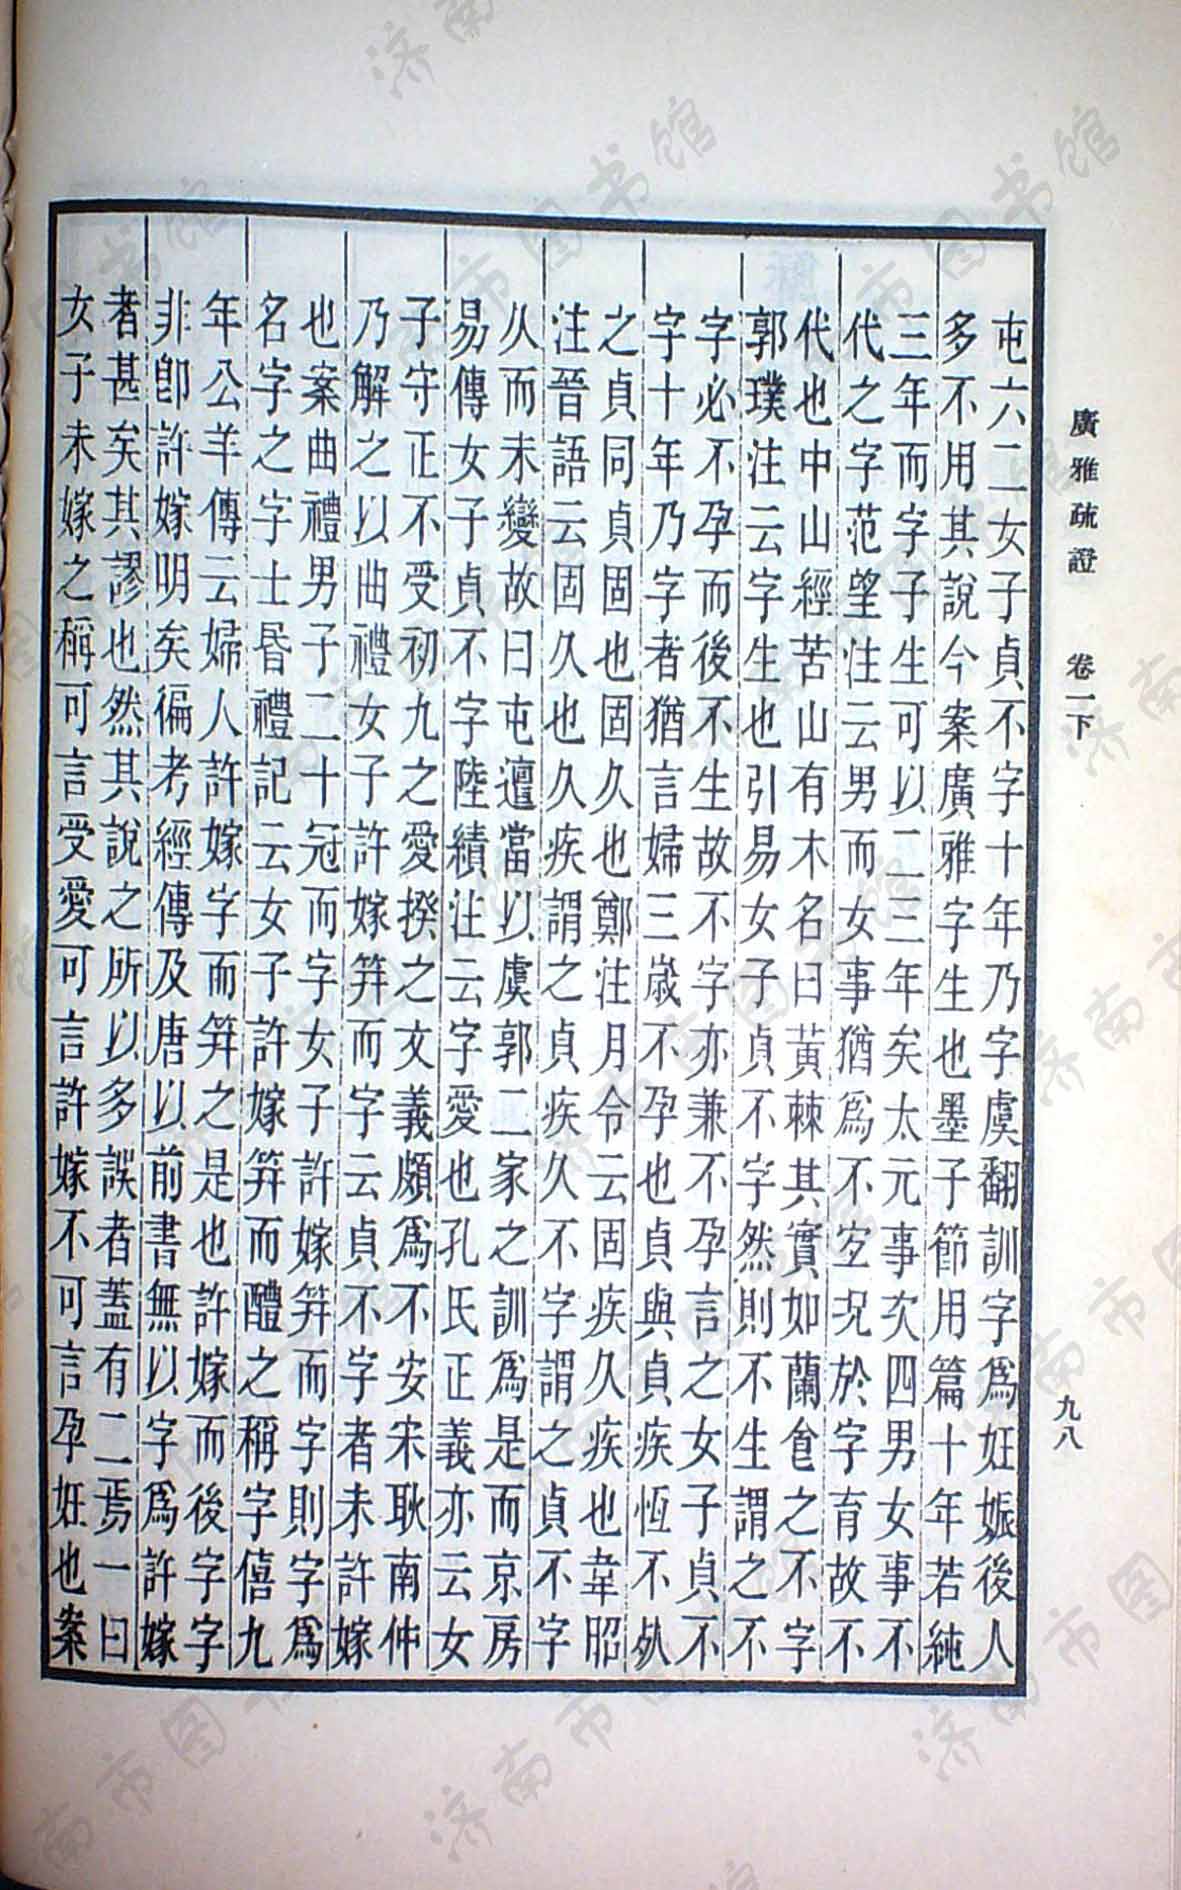 廣雅疏證 卷一下
九八
屯六二女子貞不字十年乃字虞翻訓字爲妊娠後人
多不用其說今案廣雅字生也墨子節用篇十年若純
三年而字子生可以二三年矣太元事次四男女事不
代之字范望注云男而女事猶爲不宐況於字育故不
代也中山經苦山有木名曰黃棘其實如蘭食之不字
郭璞注云字生也引易女子貞不字然則不生謂之不
字必不孕而後不生故不字亦兼不孕言之女子貞不
字十年乃字者猶言婦三歲不孕也貞與貞疾恆不㱙
之貞同貞固也固久也鄭注月令云固疾久疾也韋昭
注晉語云固久也久疾謂之貞疾久不字謂之貞不字
久而未變故曰屯邅當以虞郭二家之訓爲是而京房
易傳女子貞不字陸績注云字愛也孔氏正義亦云女
子守正不受初九之愛揆之文義頗爲不安宋耿南仲
乃解之以曲禮女子許嫁笄而字云貞不字者未許嫁
也案曲禮男子二十冠而字女子許嫁笄而字則字爲
名字之字士昏禮記云女子許嫁笄而醴之稱字僖九
年公羊傳云婦人許嫁字而笄之是也許嫁而後字字
非卽許嫁明矣徧考經傳及唐以前書無以字爲許嫁
者甚矣其謬也然其說之所以多誤者蓋有二焉一曰
女子未嫁之稱可言受愛可言許嫁不可言孕妊也案
济南市图书馆